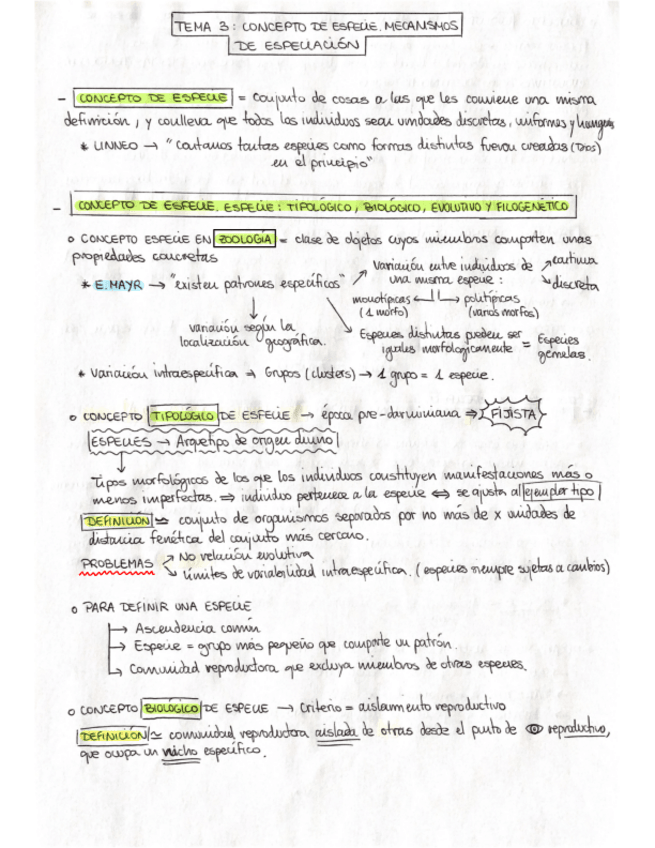 TEMA 3: CONCEPTO DE ESPECIE. MECANISMOS
DE ESPECIACIÓN
- CONCEPTO DE ESPECIE = Conjunto de cosas a las que les conviene una misma
definición, y conlleva que todos los individuos sean unidades discretas, uniformes y
* LINNEO → "Contamos tantas especies como formas distintas fueron creadas (Dios)
en el principio"
- CONCEPTO DE ESPECIE. ESPECIE: TIPOLÓGICO, BIOLÓGICO, EVOLUTIVO Y FILOGENÉTICO
o CONCEPTO ESPECIE EN ZOOLOGÍA = clase de objetos cuyos miembros comparten unas
propiedades concretas
* E. MAYR → "existen patrones específicos"
Variación entre individuos de
una misma especie:
continua
discreta
monotípicas
(1 morfo)
politípicas
(varios morfos)
variación según la
localización geográfica.
Especies distintas pueden ser
iguales morfológicamente = Especies
gemelas.
* Variación intraespecífica → Grupos (clusters) → 1 grupo = 1 especie.
o CONCEPTO TIPOLÓGICO DE ESPECIE → época pre-darwiniana ⇒ FIJISTA
ESPECIES → Arquetipo de origen divino
↓
Tipos morfológicos de los que los individuos constituyen manifestaciones más o
menos imperfectas. ⇒ individuo pertenece a la especie ⇔ se ajusta al ejemplar tipo
DEFINICIÓN ≃ conjunto de organismos separados por no más de x unidades de
distancia fenética del conjunto más cercano.
PROBLEMAS
No relación evolutiva
Límites de variabilidad intraespecífica. (especies siempre sujetas a cambios)
o PARA DEFINIR UNA ESPECIE
→ Ascendencia común
→ Especie = grupo más pequeño que comparte un patrón.
→ Comunidad reproductora que excluya miembros de otras especies.
o CONCEPTO BIOLÓGICO DE ESPECIE → Criterio = aislamiento reproductivo
DEFINICIÓN ≃ comunidad reproductora aislada de otras desde el punto de reproductivo,
que ocupa un nicho específico.